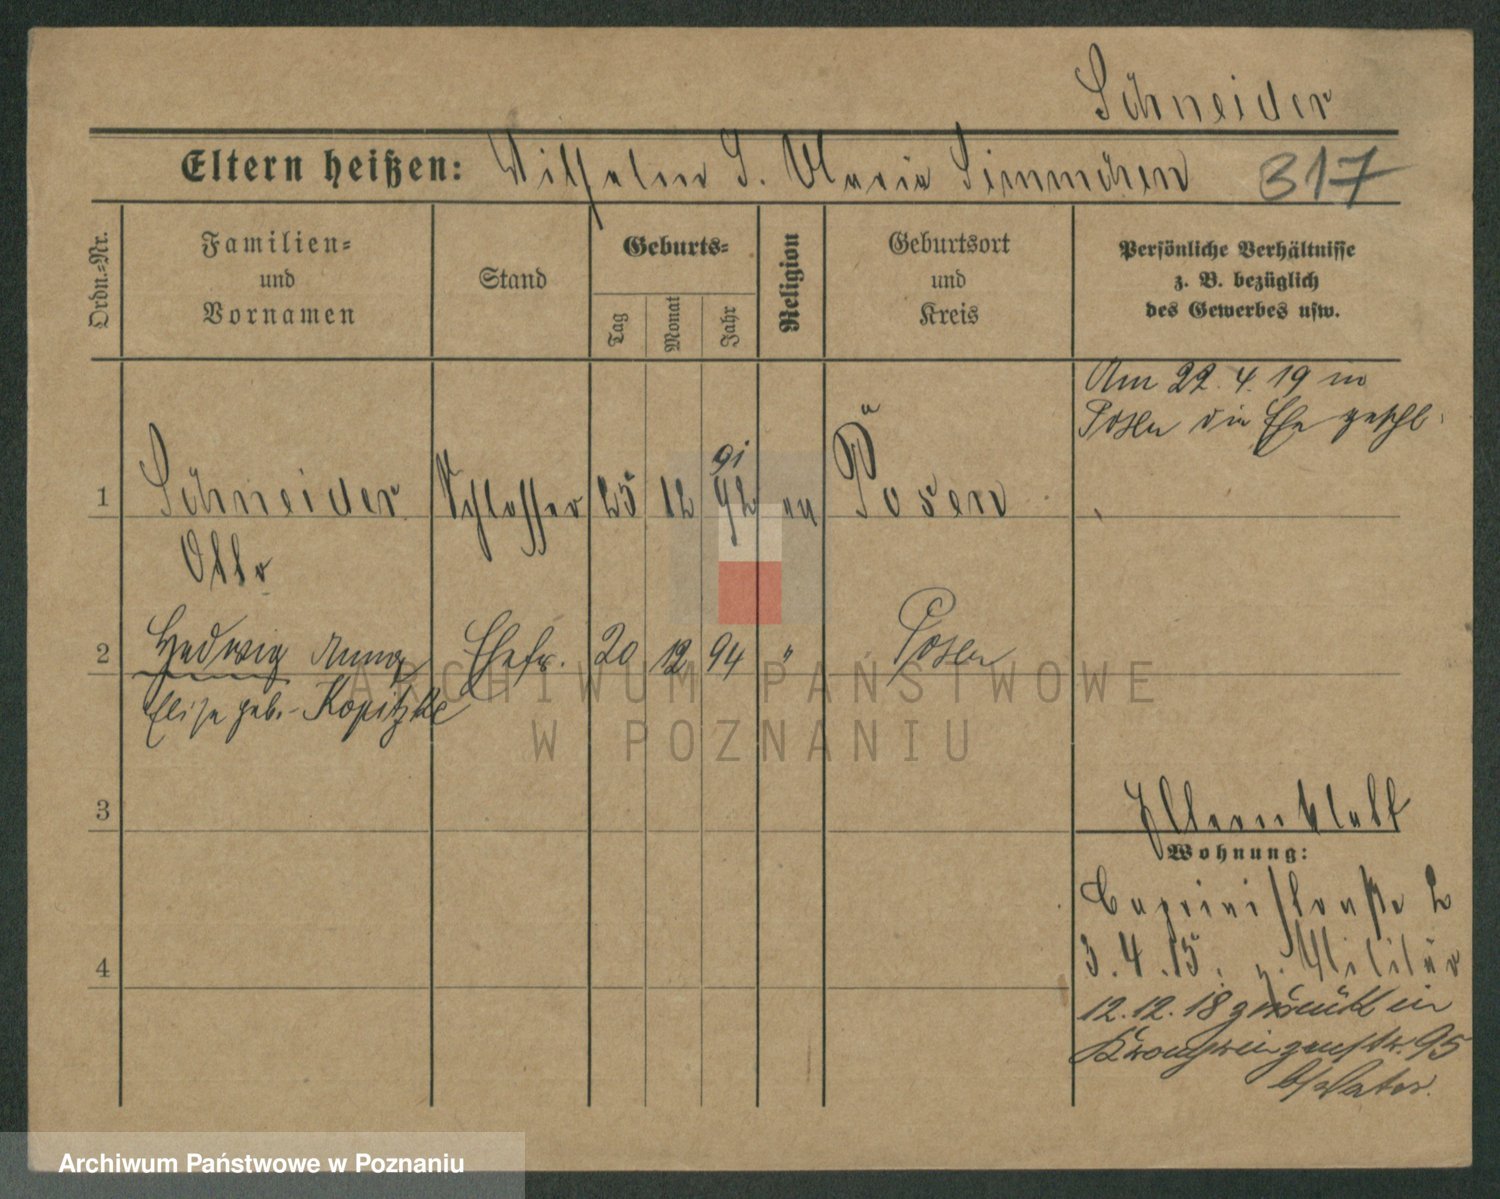 Schneider
Eltern heißen: Wilhelm S. Maria Simmchen 317
Ordn.=Nr.
Familien=
und
Vornamen
Stand
Geburts=
Tag
Monat
Jahr
Religion
Geburtsort
und
Kreis
Persönliche Verhältnisse
z. B. bezüglich
des Gewerbes usw.
Am 22. 4. 19 in
Posen die Ehe geschl.
91
1 Schneider Schlosser 25 12 92 ev Posen
Otto
2 Hedwig Anna Ehefr. 20 12 94 " Posen
Elise geb. Kopitzke
3
Elternblatt
Wohnung:
Caprivistraße 2
4
3.4.15. z. Militär
12.12.18 zurück in
Kronprinzenstr. 95
b/Vater.
ARCHIWUM PAŃSTWOWE
W POZNANIU
Archiwum Państwowe w Poznaniu